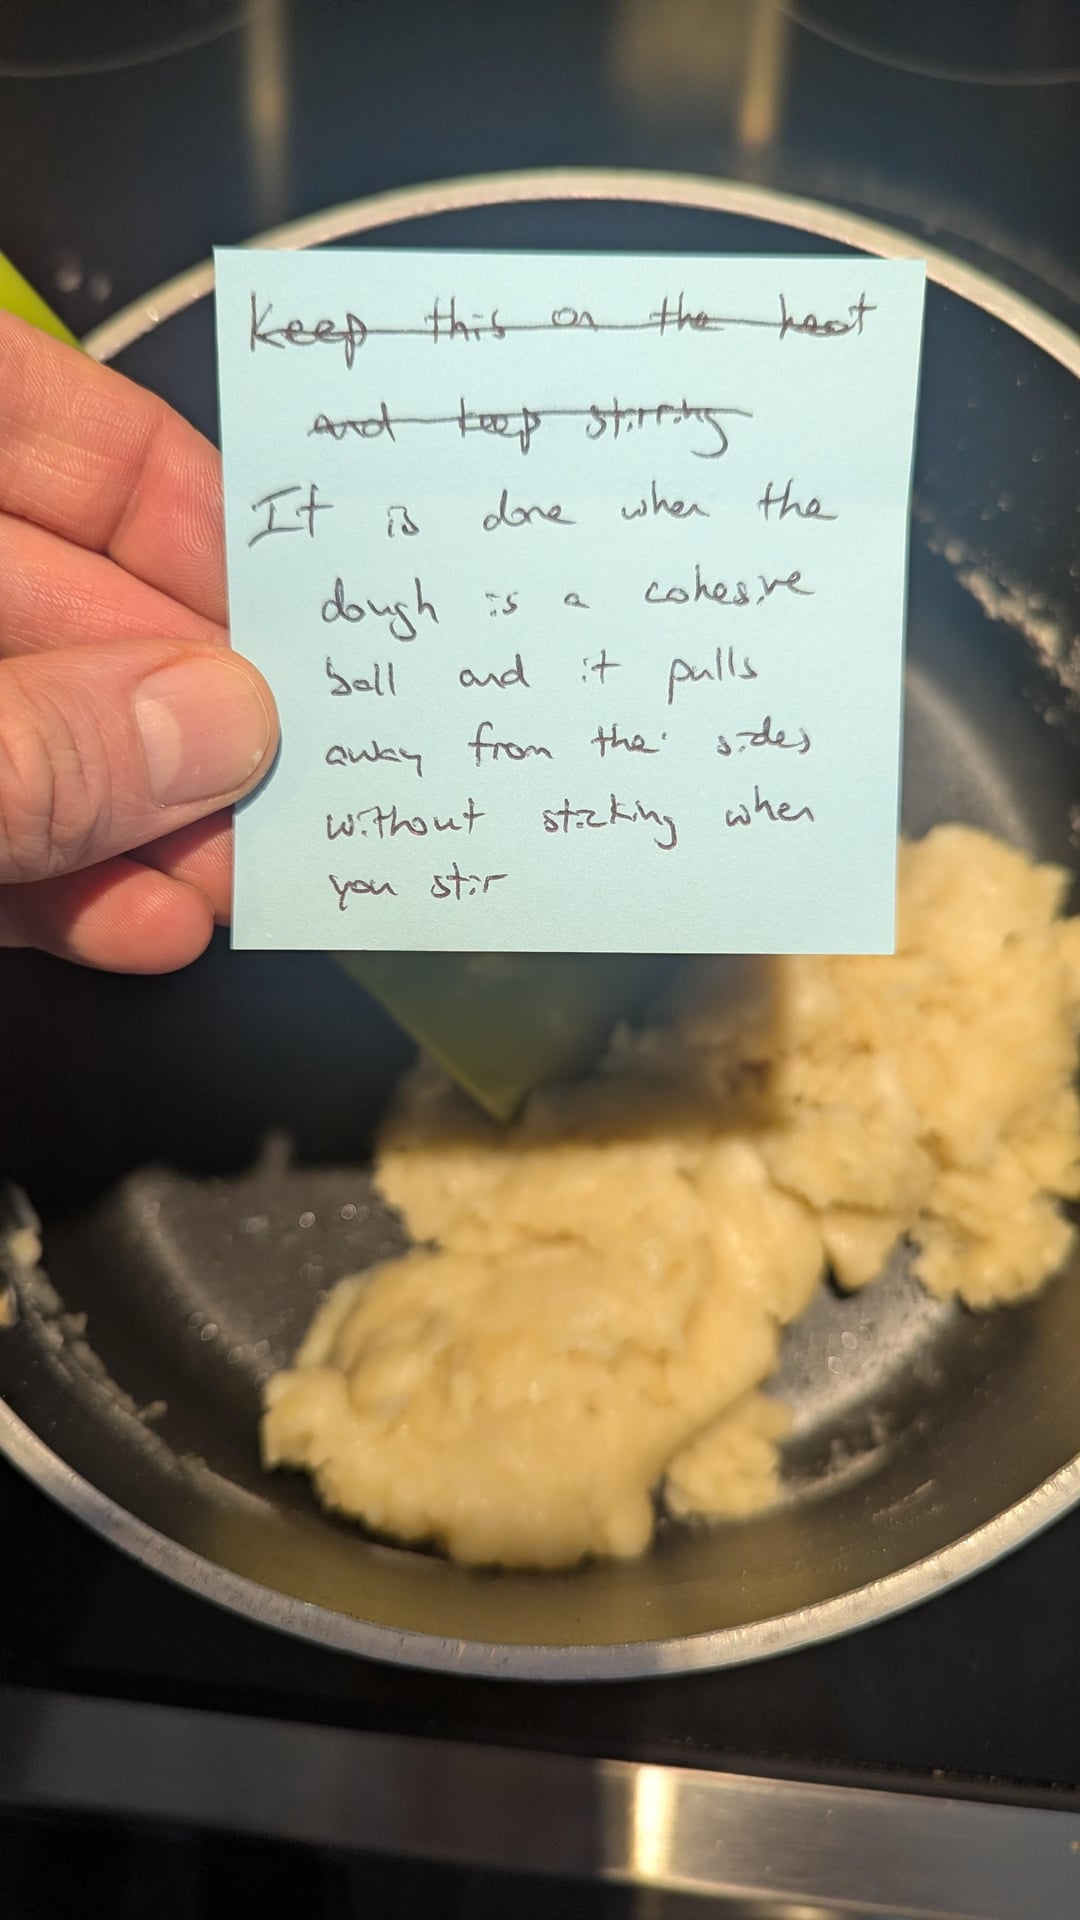 Keep this on the heat
and keep stirring
It is done when the
dough is a cohesive
ball and it pulls
away from the sides
without sticking when
you stir